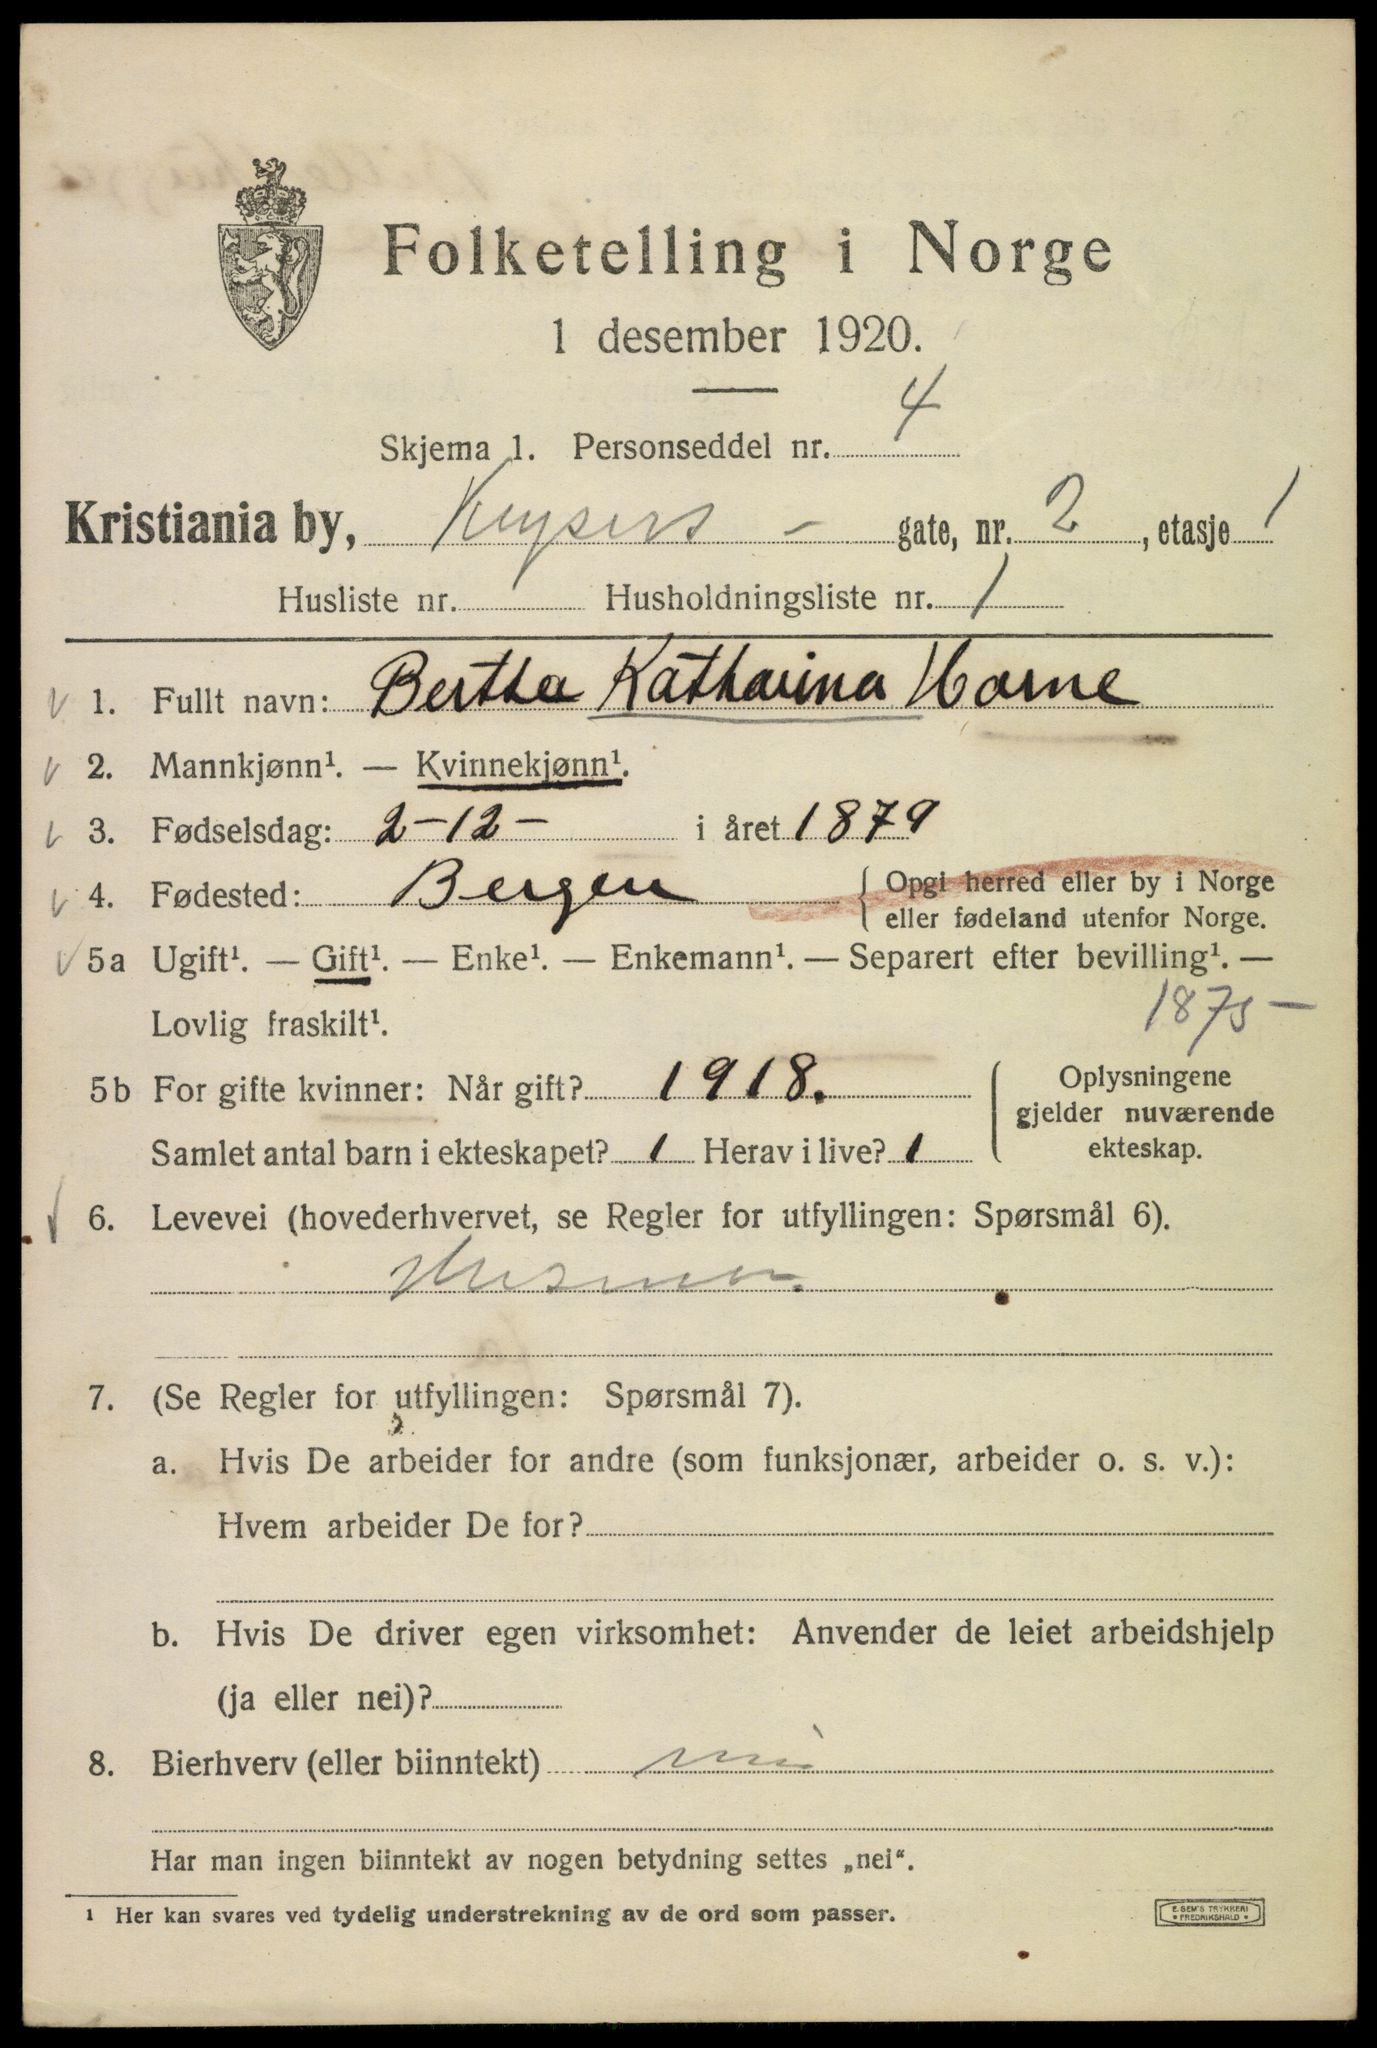 Folketelling i Norge
1 desember 1920.
Skjema 1. Personseddel nr. 4
Kristiania by, Keysers - gate, nr. 2, etasje 1
Husliste nr. Husholdningsliste nr. 1
1. Fullt navn: Bertha Katharina Horne
2. Mannkjønn¹. — Kvinnekjønn¹.
3. Fødselsdag: 2-12- i året 1879
4. Fødested: Bergen { Opgi herred eller by i Norge
eller fødeland utenfor Norge.
5a Ugift¹. — Gift¹. — Enke¹. — Enkemann¹. — Separert efter bevilling¹. —
Lovlig fraskilt¹. 1875 —
5b For gifte kvinner: Når gift? 1918. { Oplysningene
gjelder nuværende
ekteskap.
Samlet antal barn i ekteskapet? 1 Herav i live? 1
6. Levevei (hovederhvervet, se Regler for utfyllingen: Spørsmål 6).
Husmor.
7. (Se Regler for utfyllingen: Spørsmål 7).
a. Hvis De arbeider for andre (som funksjonær, arbeider o. s. v.):
Hvem arbeider De for?
b. Hvis De driver egen virksomhet: Anvender de leiet arbeidshjelp
(ja eller nei)?
8. Bierhverv (eller biinntekt) nei
Har man ingen biinntekt av nogen betydning settes „nei“.
¹ Her kan svares ved tydelig understrekning av de ord som passer.
E. SEM'S TRYKKERI
• FREDRIKSHALD •